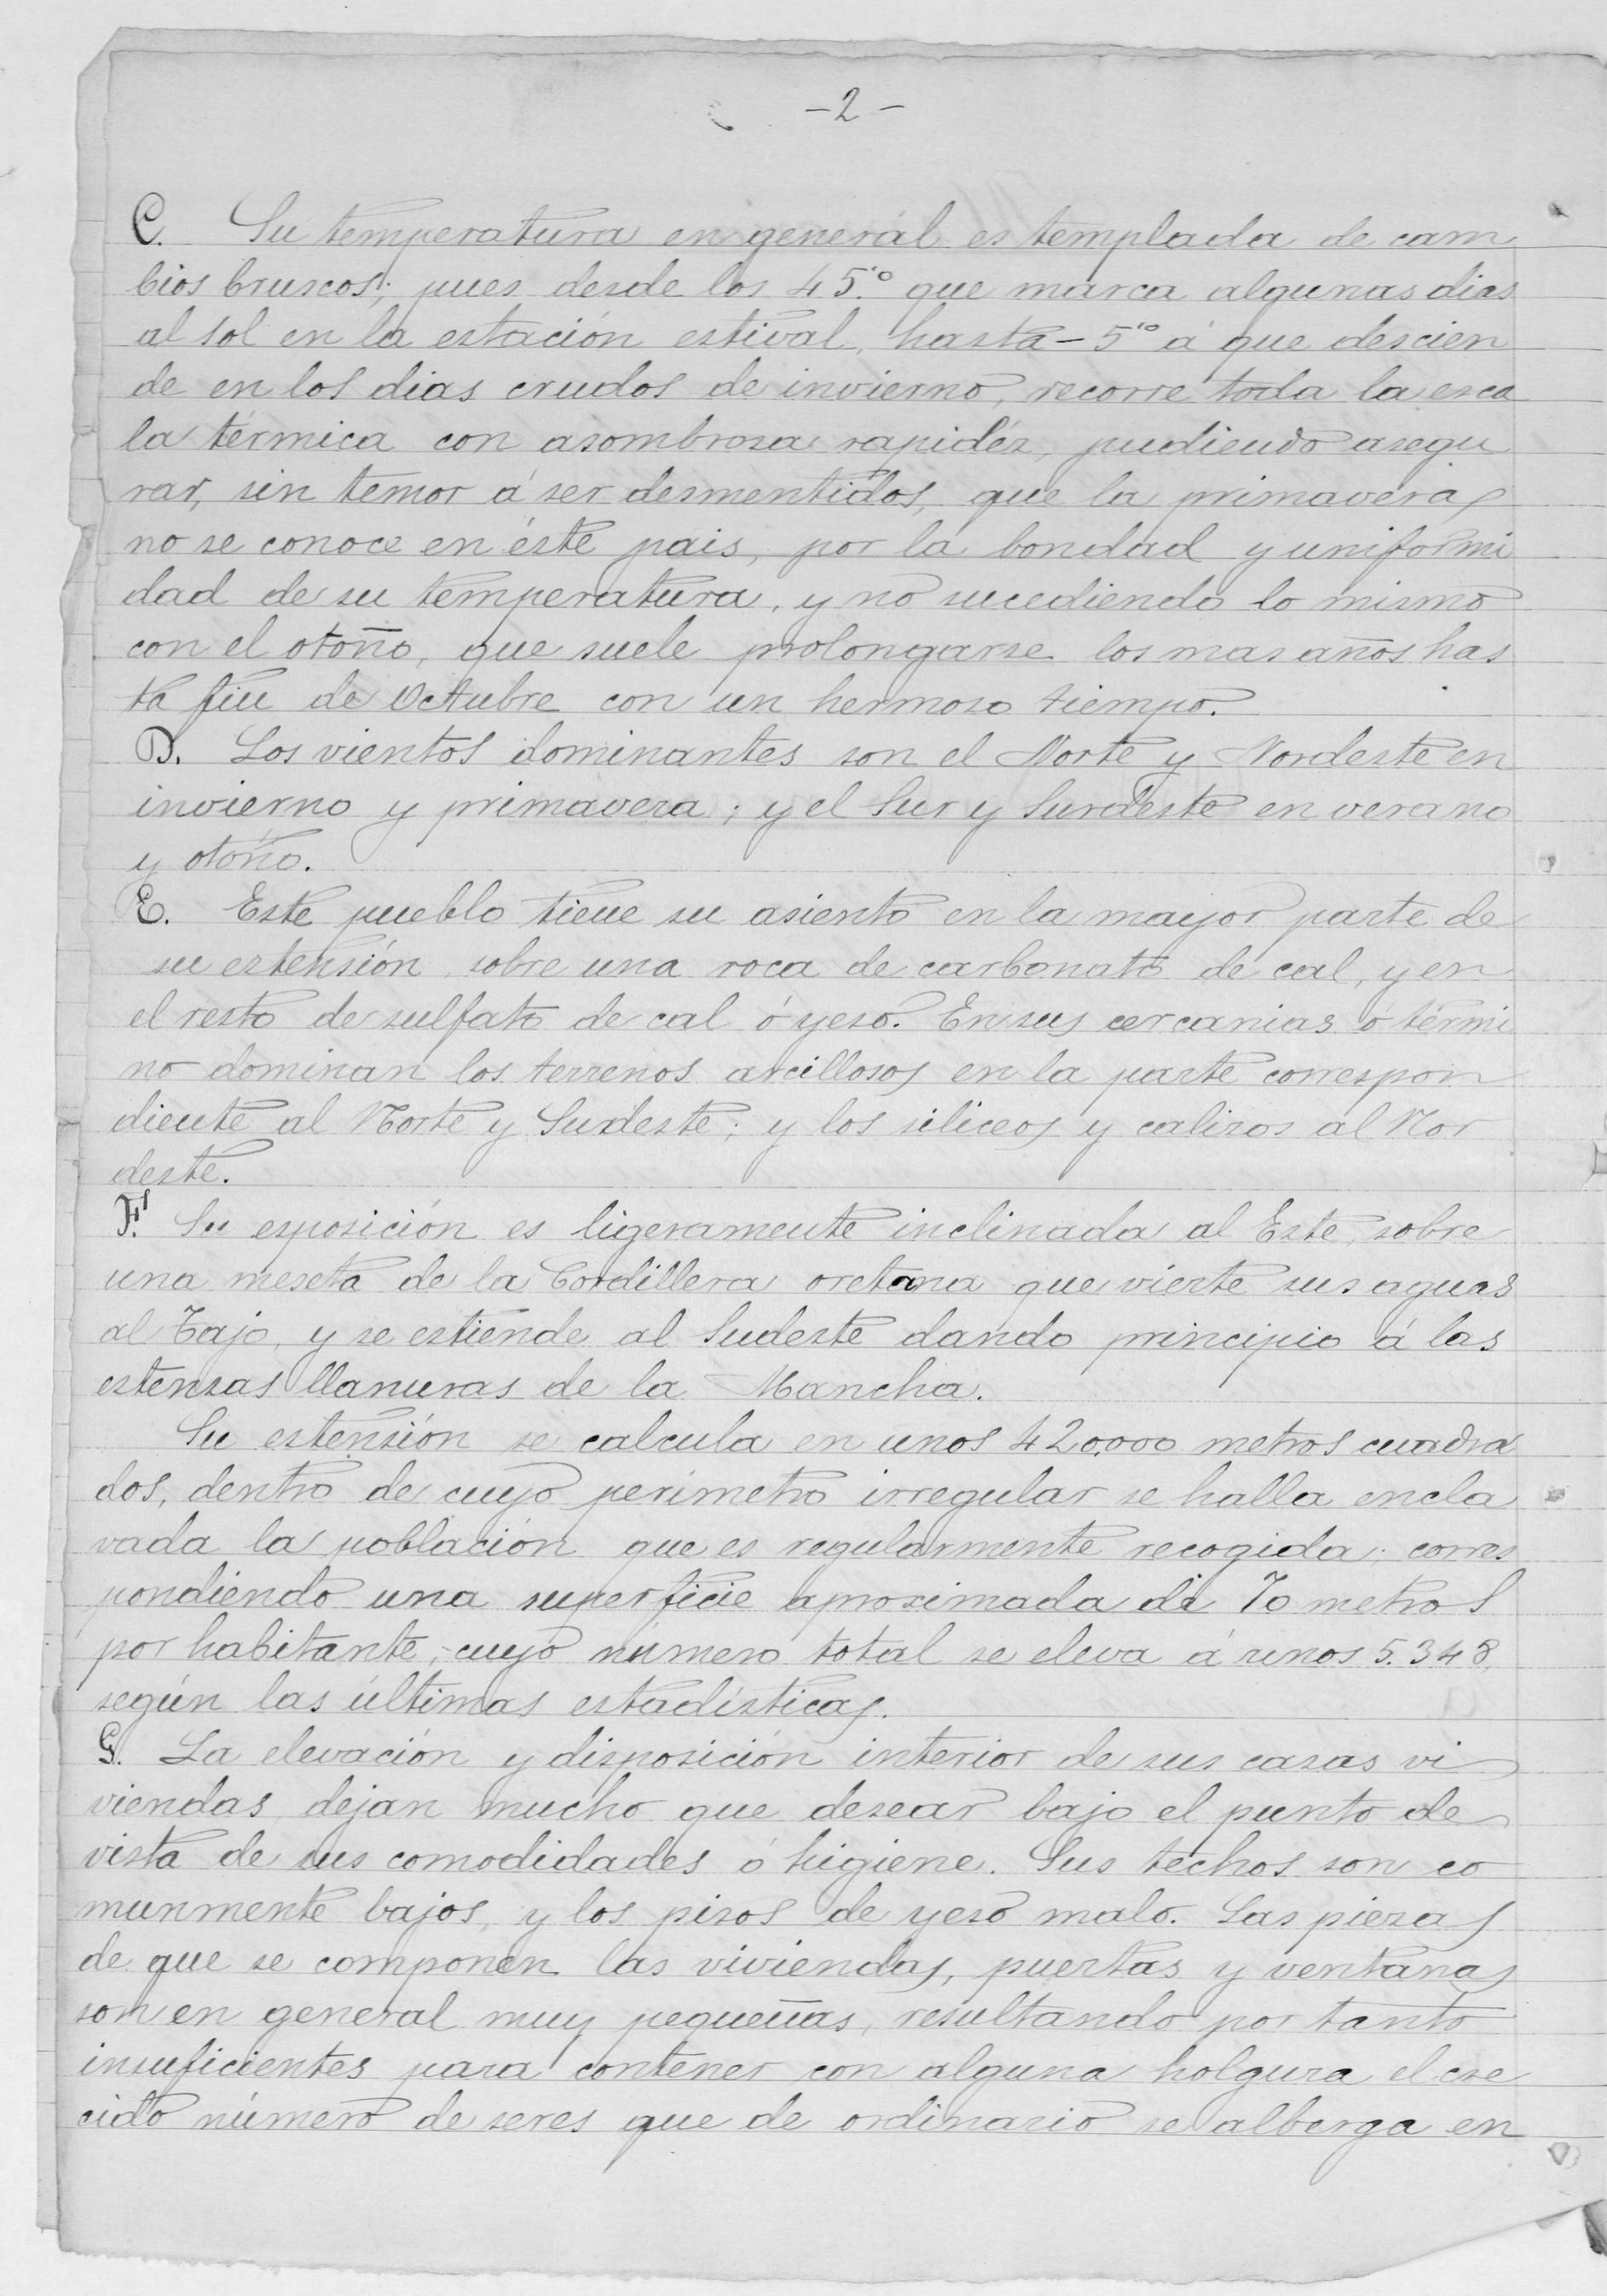 -2-
C. Su temperatura en generál es templada de cam
bios bruscos; pues desde los 45.º que marca algunas dias
al sol en la estación estival, hasta -5º á que descien
de en los dias crudos de invierno, recorre toda la esca
la térmica con asombrosa rapidéz, pudiendo asegu
rar, sin temor á ser desmentidos, que la primavera
no se conoce en éste pais, por la bondad y uniformi
dad de su temperatura, y no sucediendo lo mismo
con el otoño, que suele prolongarse los mas años has
ta fin de Octubre con un hermoso tiempo.
D. Los vientos dominantes son el Norte y Nordeste en
invierno y primavera; y el Sur y Surdeste en verano
y otoño.
E. Este pueblo tiene su asiento en la mayor parte de
su estensión sobre una roca de carbonato de cal, y en
el resto de sulfato de cal ó yeso. En sus cercanias ó térmi
no dominan los terrenos arcillosos en la parte correspon
diente al Norte y Sudeste; y los siliceos y calizos al Nor
deste.
F. Su esposición es ligeramente inclinada al Este, sobre
una meseta de la Cordillera oretana que vierte sus aguas
al Tajo, y se estiende al Sudeste dando principio á las
estensas llanuras de la Mancha.
Su estensión se calcula en unos 420.000 metros cuadra
dos, dentro de cuyo perímetro irregular se halla encla
vada la población que es regularmente recogida; corres
pondiendo una superficie aproximada de 70 metros
por habitante, cuyo número total se eleva á unos 5.348,
según las últimas estadísticas.
G. La elevación y disposición interior de sus casas vi
viendas, dejan mucho que desear bajo el punto de
vista de sus comodidades ó higiene. Sus techos son co
munmente bajos, y los pisos de yeso malo. Las piezas
de que se componen las viviendas, puertas y ventanas
son en general muy pequeñas, resultando por tanto
insuficientes para contener con alguna holgura el cre
cido número de seres que de ordinario se alberga en